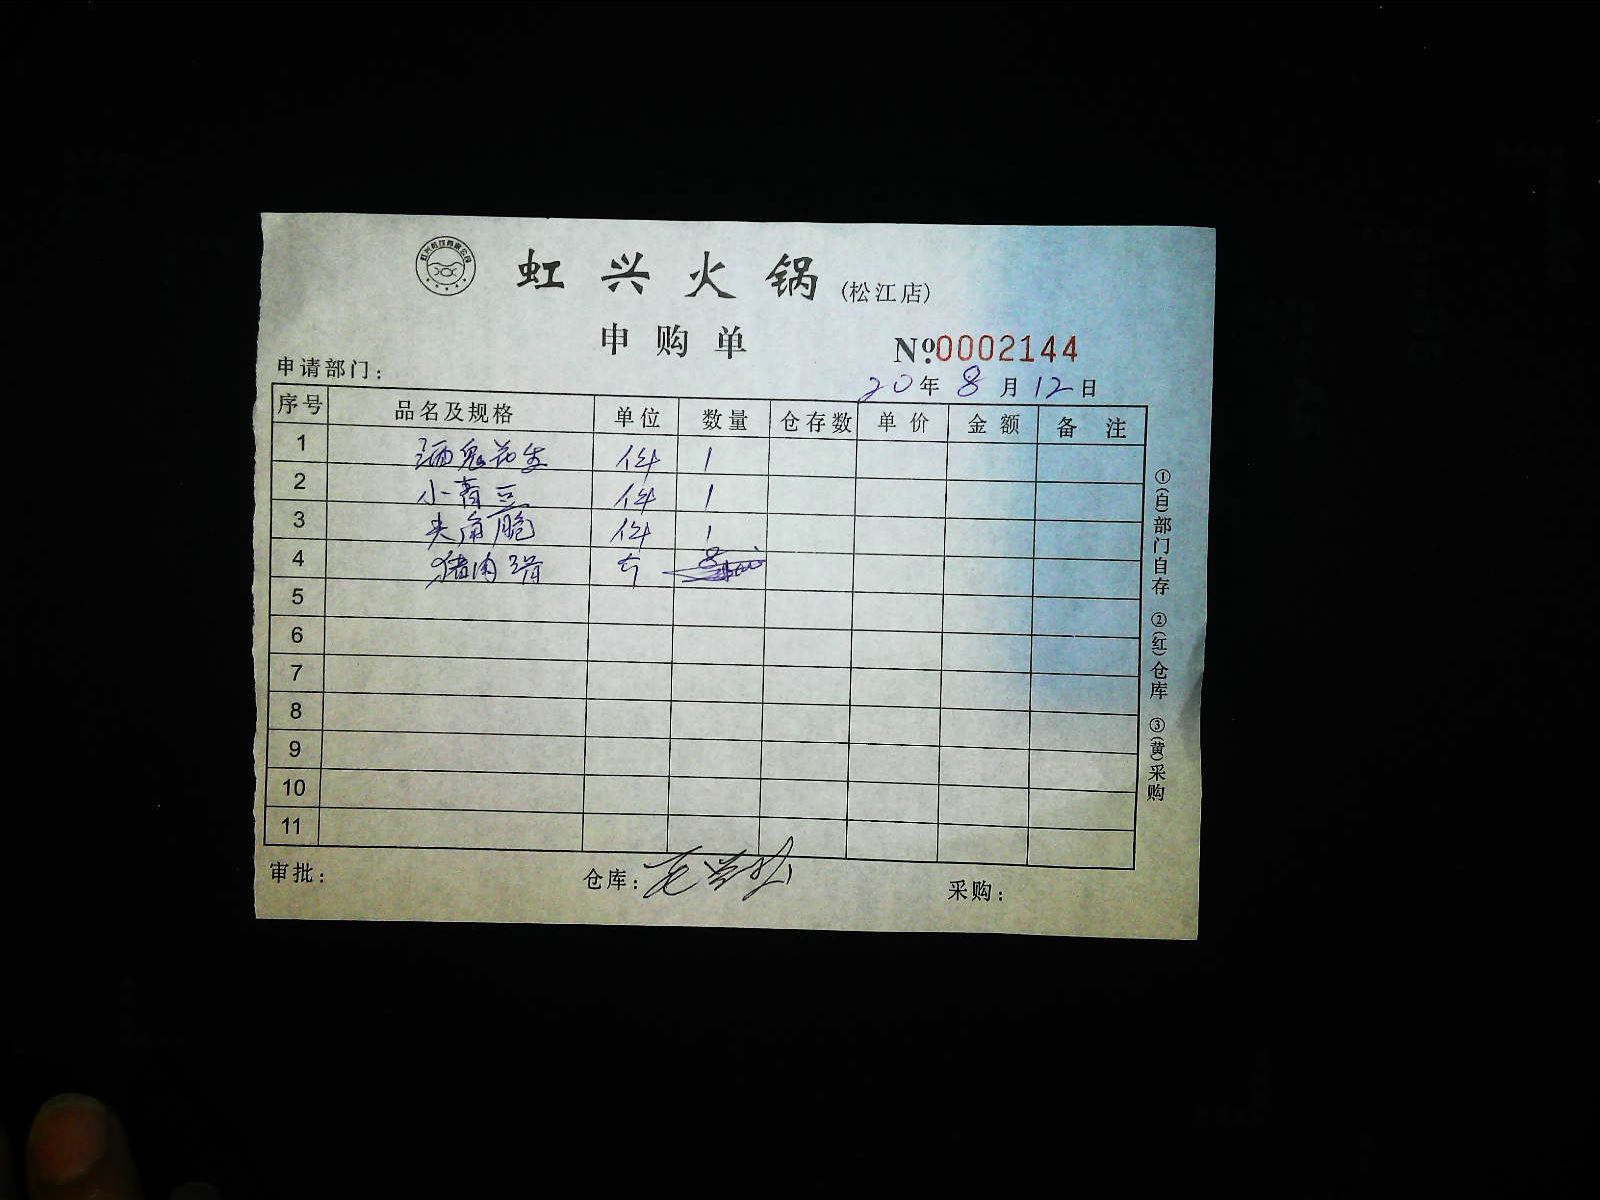 虹兴火锅(松江店)
申购单
№:0002144
申请部门:
20年8月12日
序号 品名及规格 单位 数量 仓存数 单价 金额 备注
1 酒鬼花生 件 1
2 小青豆 件 1
3 尖角脆 件 1
4 猪肉
5
6
7
8
9
10
11
①(白)部门自存 ②(红)仓库 ③(黄)采购
审批: 仓库: 采购: